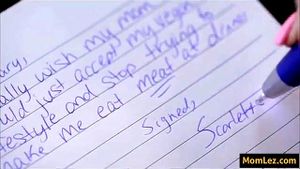 ary,
ally wish my mom
uld just accept my vegan
festyle and stop trying to
make me eat meat at dinner
Signed,
Scarlett
MomLez.com